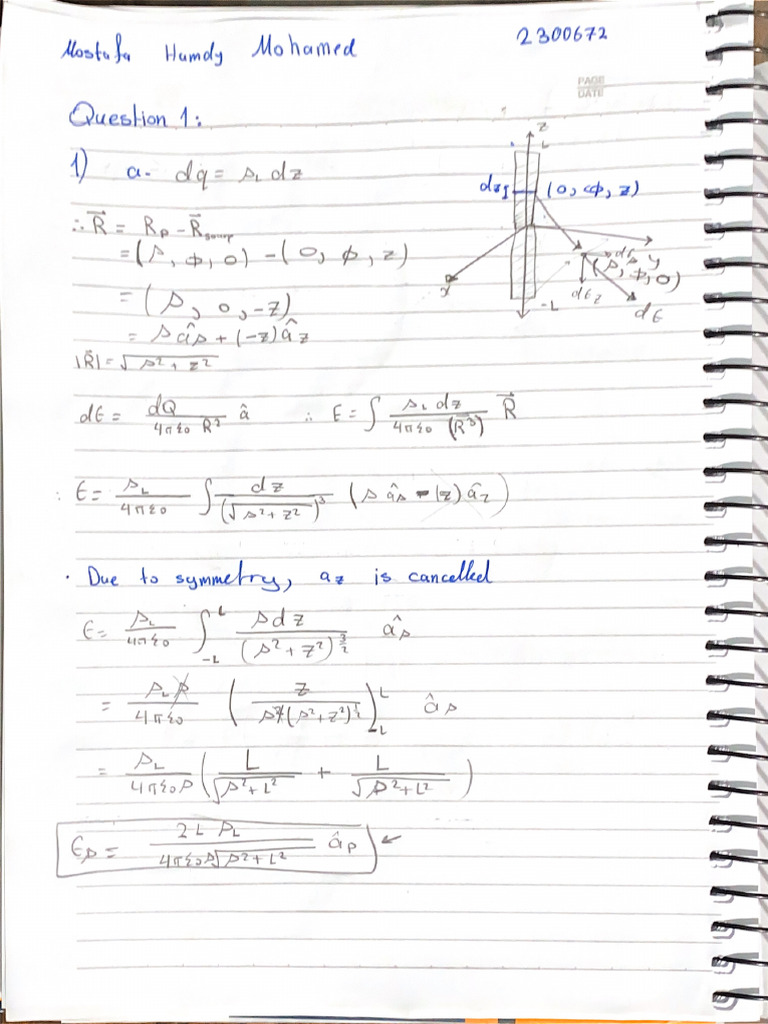 Mostafa Hamdy Mohamed 2300672
PAGE
DATE
Question 1:
1) a- dq = ρL dz
∴ R⃗ = RP - R⃗
= (ρ, φ, 0) - (0, φ, z)
= (ρ, 0, -z)
= ρ âρ + (-z) âz
|R⃗| = √(ρ² + z²)
z
L
dz (0, φ, z)
y
(ρ, φ, 0)
x
-L
dEz
dE
dE = dQ / 4πε0 R² â ∴ E = ∫ ρL dz / 4πε0 (R³) R⃗
∴ E = ρL / 4πε0 ∫ dz / (√(ρ² + z²))³ (ρ âρ - (z) âz)
· Due to symmetry, az is cancelled
E = ρL / 4πε0 ∫_-L^L ρ dz / (ρ² + z²)^(3/2) âρ
= ρL ρ / 4πε0 (z / ρ² (ρ² + z²)^(1/2))_-L^L âρ
= ρL / 4πε0 ρ (L / √(ρ² + L²) + L / √(ρ² + L²))
Eρ = 2L ρL / 4πε0 ρ √(ρ² + L²) âρ ←